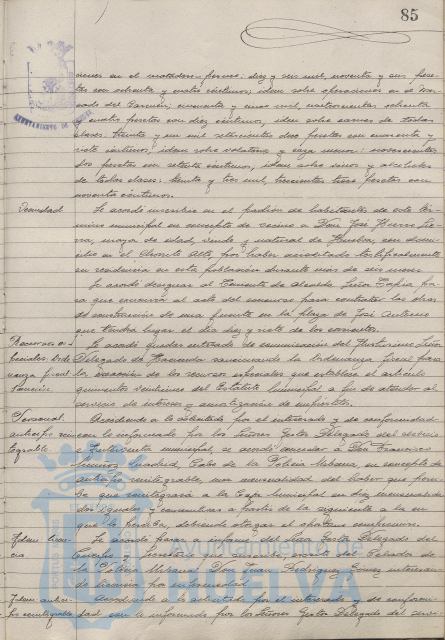 85
AYUNTAMIENTO DE HUELVA
ciones en el matadero ; diez y seis mil, noventa y seis pese-
tas con ochenta y cuatro céntimos; idem sobre operaciones en el Mer-
cado del Carmen; cincuenta y cinco mil, cuatrocientas ochenta
y cuatro pesetas con diez céntimos, idem sobre carnes de todas
clases; treinta y un mil setecientas dos pesetas con cuarenta y
siete céntimos, idem sobre volatería y caza menor; novecientas
dos pesetas con setenta céntimos, idem sobre vinos y alcoholes
de todas clases; treinta y tres mil, trescientas tres pesetas con
noventa céntimos.
Vecindad Se acordó inscribir en el padrón de habitantes de este tér-
mino municipal en concepto de vecino a Don José Hierro
, mayor de edad, viudo y natural de Huelva, con domi-
cilio en el Chorrito Alto, por haber acreditado
su residencia en esta población durante más de seis meses.
Se acordó designar al Teniente de Alcalde Señor Tapia pa-
ra que concurra al acto del concurso para contratar las obras
de construcción de una fuente en la plaza de José Antonio
que tendrá lugar el día diez y siete de los corrientes.
Recursos es- Se acordó quedar enterado de comunicación del Ilustrísimo Señor
peciales Orde- Delegado de Hacienda sancionando la Ordenanza fiscal para
nanza fiscal la exacción de los recursos especiales que establece el artículo
Sanción quinientos veintinueve del Estatuto municipal a fin de atender al
servicio de intereses y amortización de empréstitos.
Personal. Accediendo a lo solicitado por el interesado y de conformidad
anticipo rein- con lo informado por los Señores Gestor Delegado del servicio
tegrable e Interventor municipal, se acordó conceder a Don Francisco
Madrid, Cabo de la Policía Urbana, en concepto de
anticipo reintegrable, una mensualidad del haber que perci-
be que reintegrará a la Caja municipal en diez mensualida-
des iguales y consecutivas a partir de la siguiente a la en
que lo perciba, debiendo otorgar el oportuno compromiso.
Idem licen- Se acordó pasar a informe del Señor Gestor Delegado del
cia Cuerpo y Secretaría el escrito del Celador de
la Policía Urbana Don Juan Rodríguez Gómez interesan-
do licencia por enfermedad.
Idem antici- Accediendo a lo solicitado por el interesado y de conformi-
po reintegrable dad con lo informado por los Señores Gestor Delegado del servi-
Ayuntamiento de
HUELVA